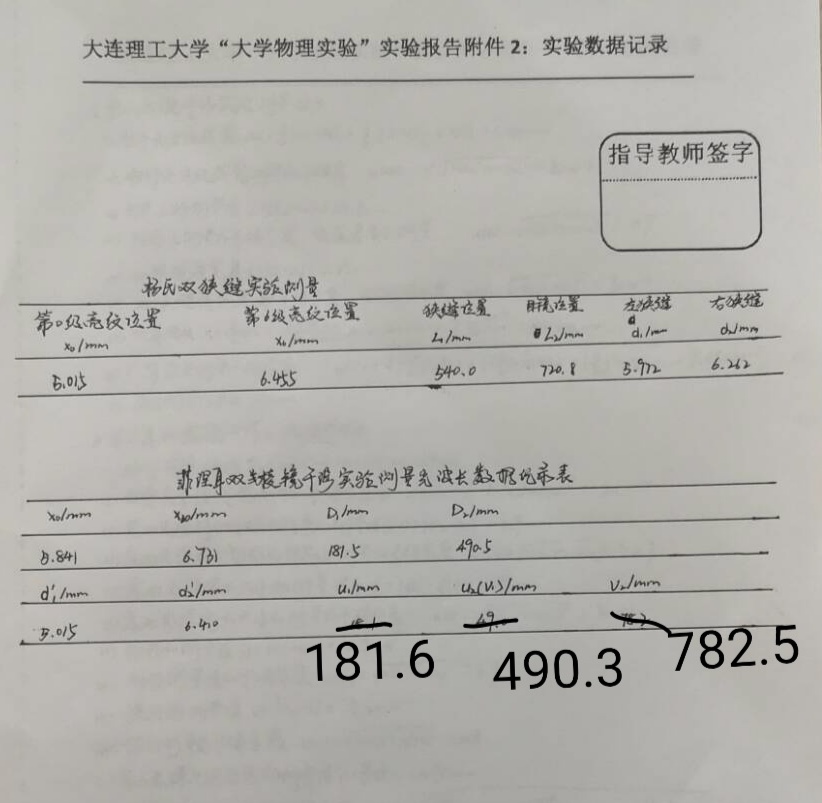 大连理工大学“大学物理实验”实验报告附件2：实验数据记录
指导教师签字
杨氏双狭缝实验测量
第0级亮纹位置 第6级亮纹位置 狭缝位置 目镜位置 左狭缝 右狭缝
x₀/mm x₆/mm L₁/mm L₂/mm d₁/mm d₂/mm
5.015 6.455 540.0 720.8 5.972 6.262
菲涅耳双棱镜干涉实验测量光波长数据记录表
x₀/mm x₁₀/mm D₁/mm D₂/mm
5.841 6.731 181.5 490.5
d₁'/mm d₂'/mm u₁/mm u₂(v₁)/mm v₂/mm
5.015 6.410
181.6 490.3 782.5